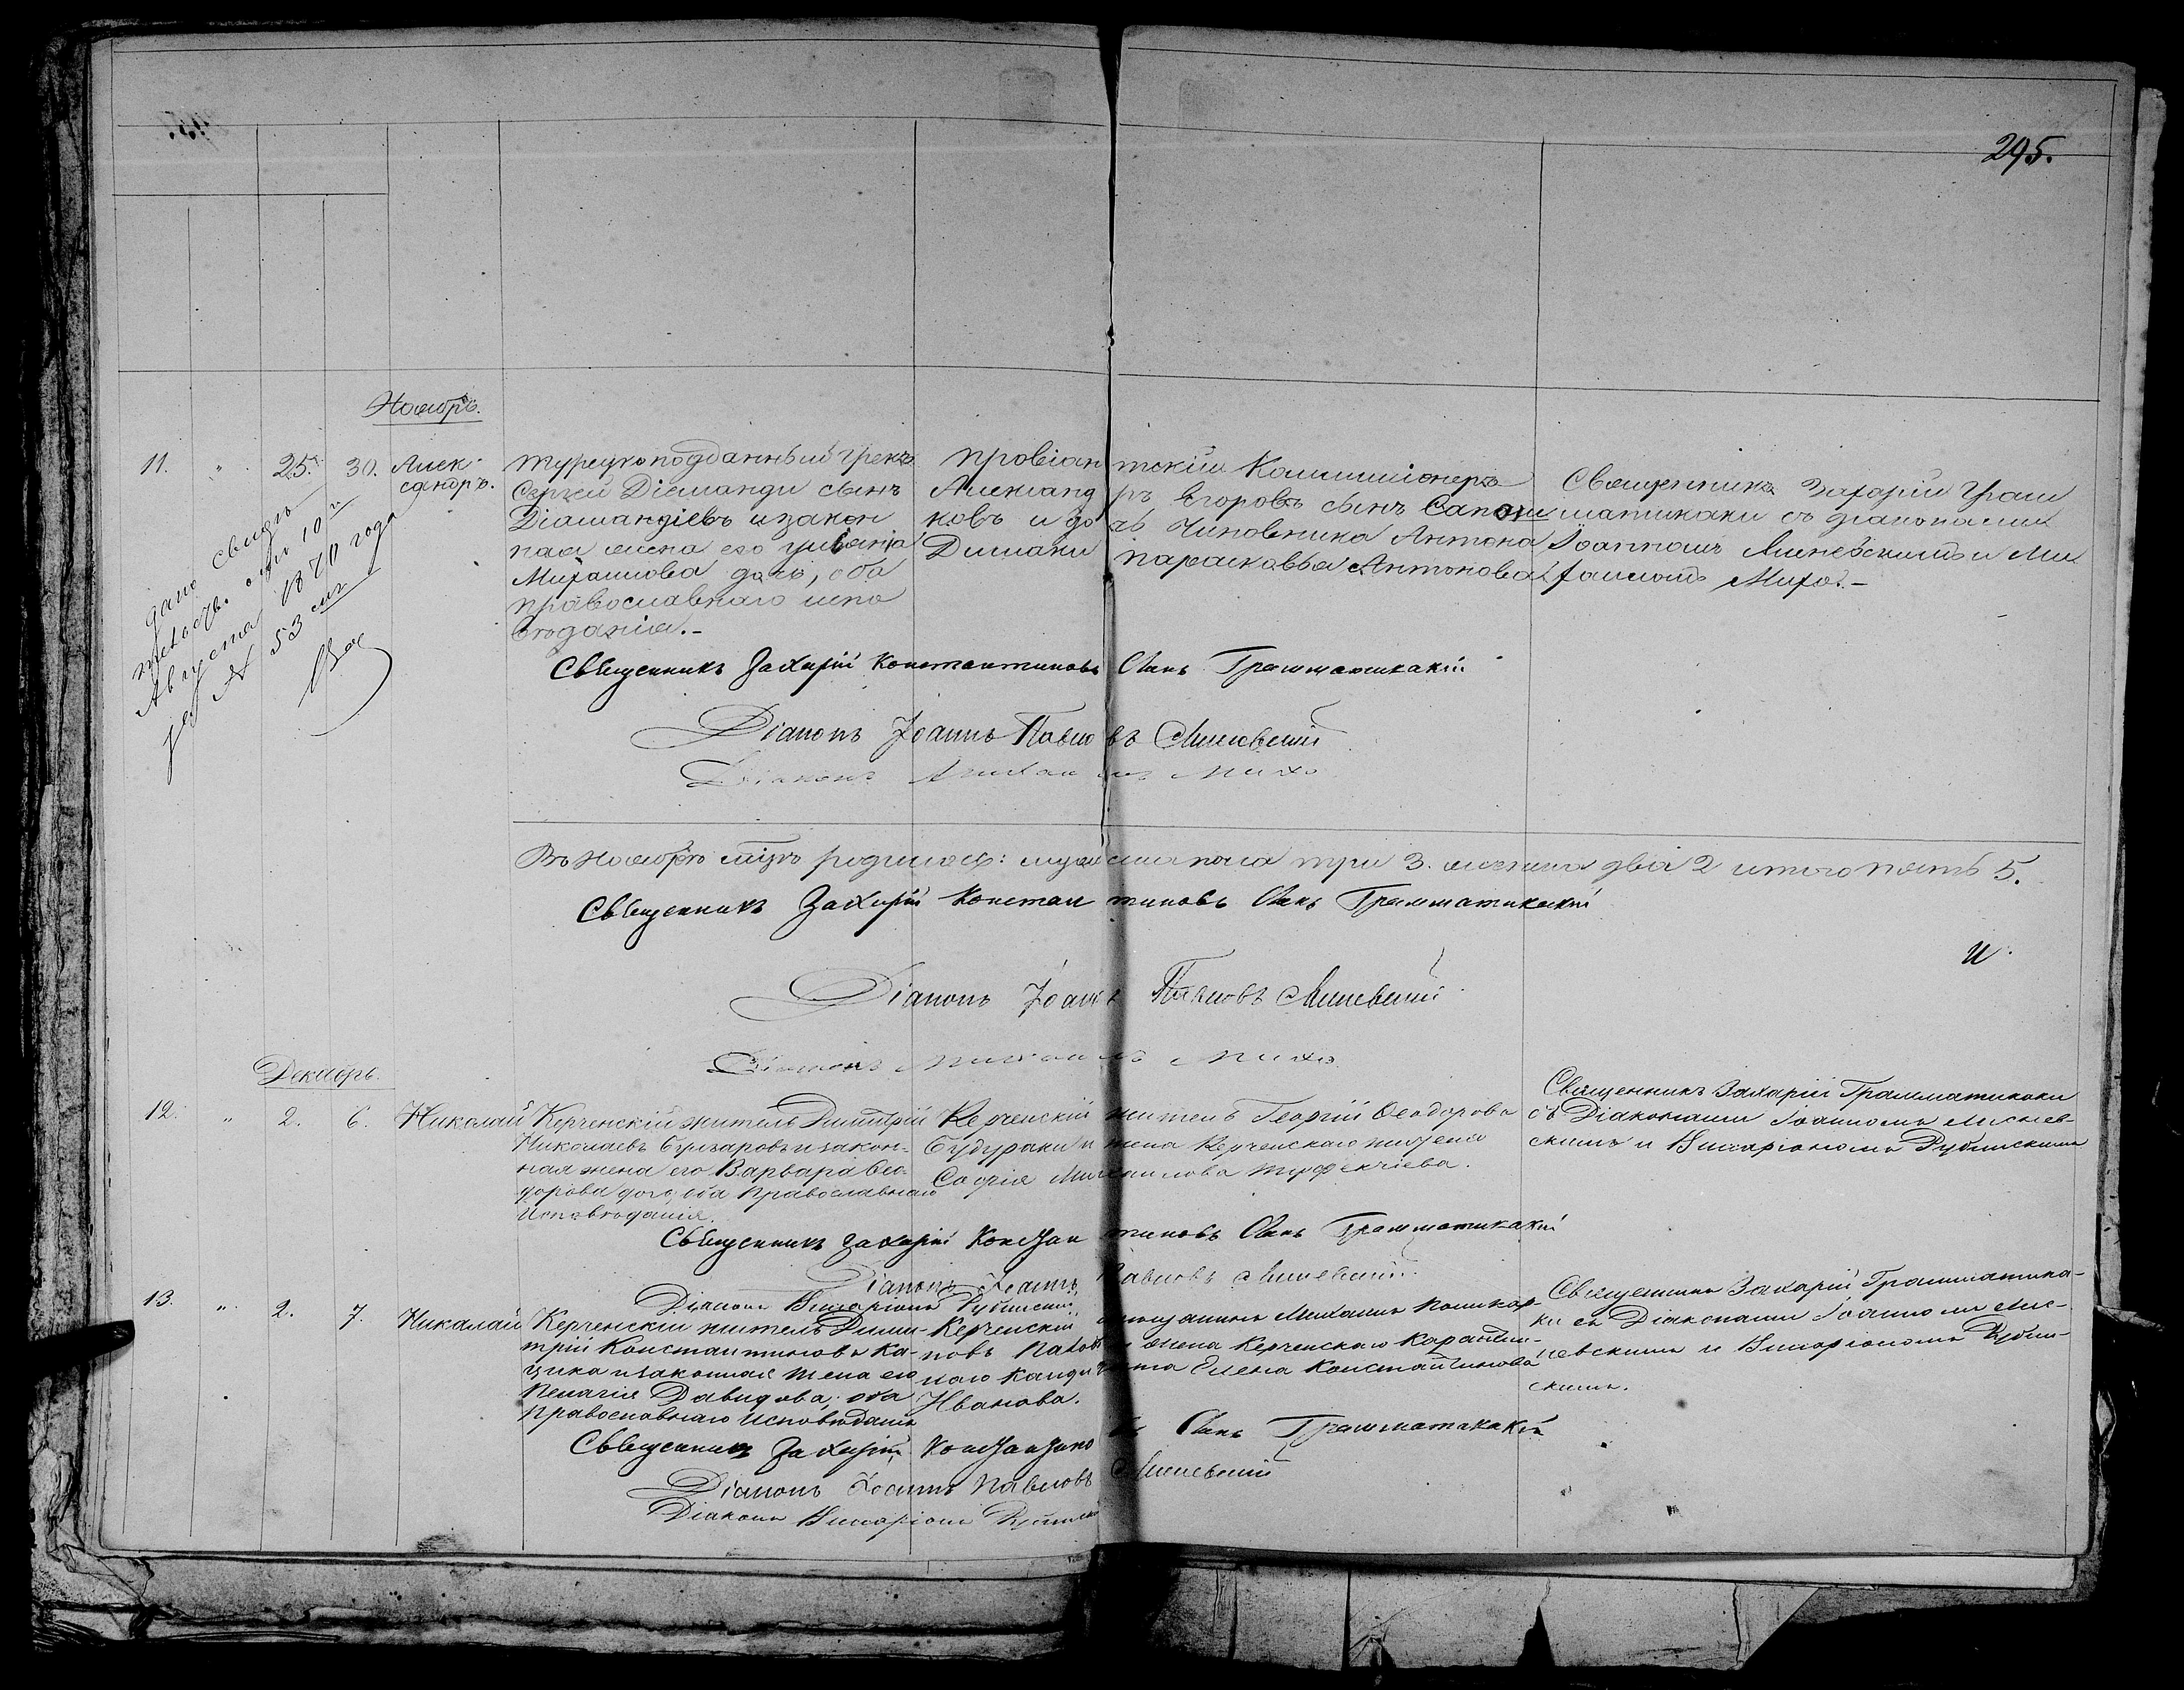 295.
Ноябрь.
11. " 25. 30. Алек-
сандръ.
Турецкоподданный грекъ
Сергей Діаманди сынъ
Діамандіевъ и закон
ная жена его
Михайлова дочь, оба
православнаго испо
вѣданія.-
Провіантскій Коммиссіонеръ
Александръ Егоровъ сынъ Сапош
ковъ и дочь Чиновника Антона
Димаки Парасковья Антонова.
Священникъ Захарій Грам
матикаки съ діаконами
Іоанномъ и Ми
хаиломъ Михо.-
дано свидѣ
августа 1870 года
№ 53
Священникъ Захарій Константиновъ Сынъ Грамматикакій
Діаконъ Іоаннъ Павловъ
Діаконъ Михаилъ Михо
Въ ноябрѣ мцѣ родилось: мужеска пола три 3. женска два 2 итого пять 5.
Священникъ Захарій Константиновъ Сынъ Грамматикакій
и
Діаконъ Іоаннъ Павловъ
Діаконъ Михаилъ Михо
Декабрь.
12. " 2. 6. Николай
Керченскій житель Димитрій
Николаевъ Булгаровъ и закон-
ная жена его Варвара Ѳео-
дорова дочь, оба Православнаго
Исповѣданія.
Керченскій житель Георгій Ѳеодоровъ
Будураки и жена Керченскаго
Софія Михайлова Туфекчіева.
Священникъ Захарій Грамматикаки
съ Діаконами Іоанномъ
скимъ и Виссаріономъ Рубинскимъ
Священникъ Захарій Константиновъ Сынъ Грамматикакій
Діаконъ Іоаннъ Павловъ
Діаконъ Виссаріонъ Рубинскій
13. " 2. 7. Николай
Керченскій житель Дими-
трій Константиновъ Ка-
цика и законная жена его
Пелагія Давидова, оба
Православнаго Исповѣданія
Керченскій мещанинъ Михаилъ
новъ и жена Керченскаго Карантин-
наго Елена Константинова
Иванова.
Священникъ Захарій Грамматика-
ки съ Діаконами Іоанномъ
невскимъ и Виссаріономъ Рубин-
скимъ.
Священникъ Захарій Константиновъ Сынъ Грамматикакій
Діаконъ Іоаннъ Павловъ
Діаконъ Виссаріонъ